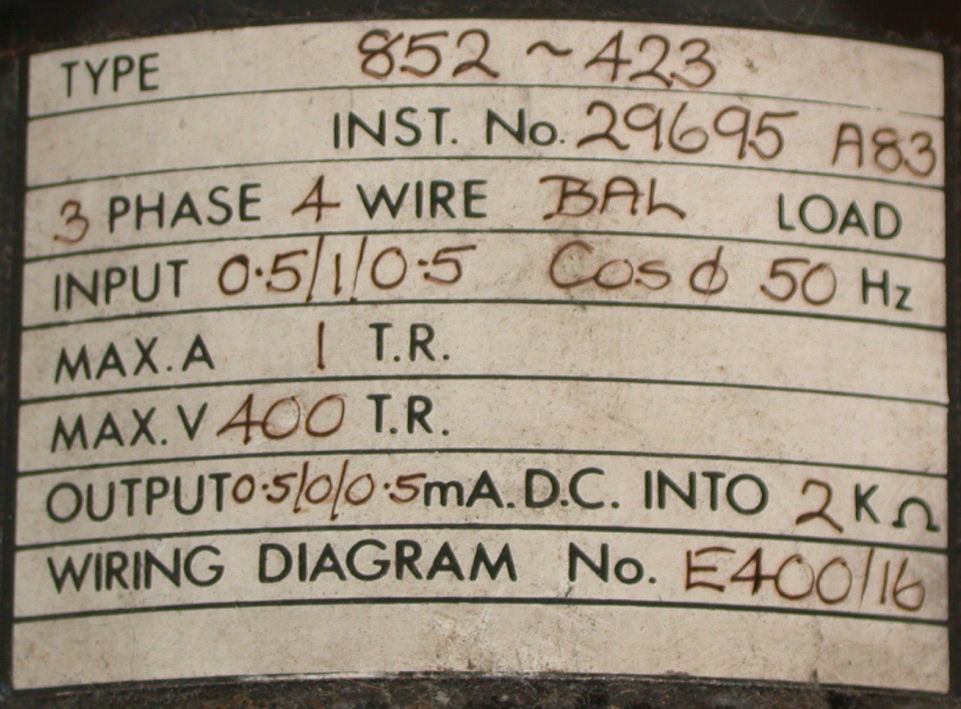 TYPE 852 ~ 423
INST. No. 29695 A83
3 PHASE 4 WIRE BAL LOAD
INPUT 0·5/1/0·5 Cos ϕ 50 Hz
MAX. A 1 T.R.
MAX. V 400 T.R.
OUTPUT 0·5/0/0·5 mA. D.C. INTO 2 K Ω
WIRING DIAGRAM No. E400/16